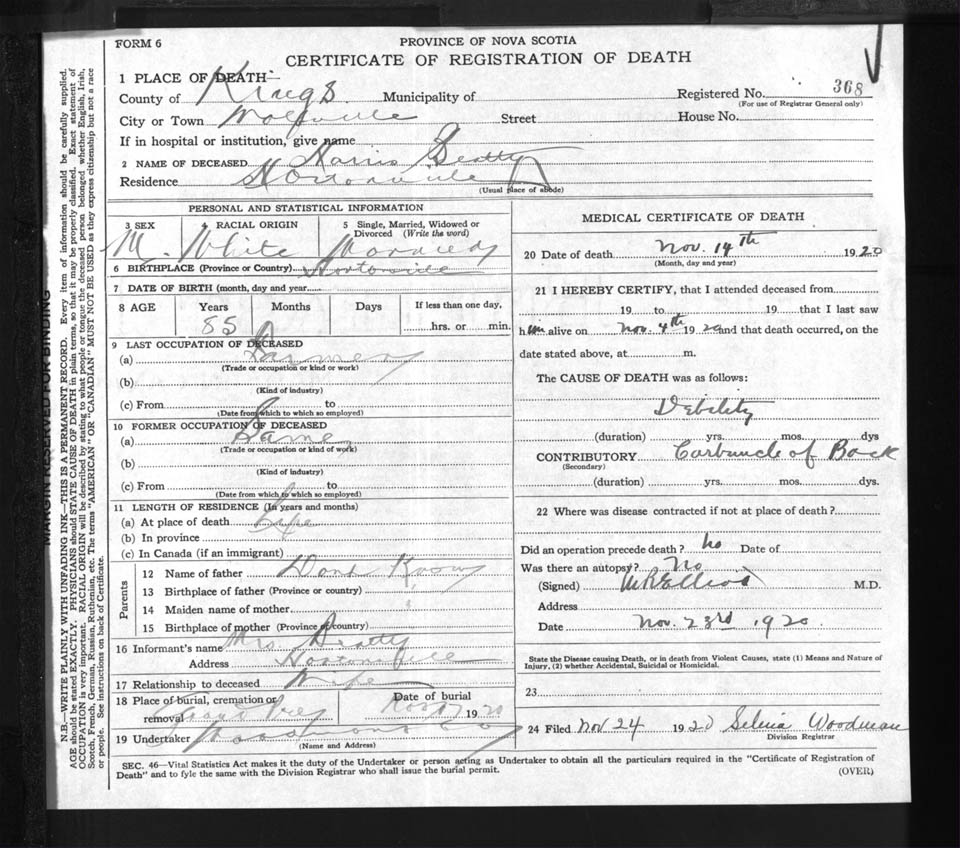 FORM 6
PROVINCE OF NOVA SCOTIA
CERTIFICATE OF REGISTRATION OF DEATH
1 PLACE OF DEATH—
County of Kings Municipality of
Registered No. 368
(For use of Registrar General only)
City or Town Wolfville Street House No.
If in hospital or institution, give name
2 NAME OF DECEASED Beatty
Residence Hortonville
(Usual place of abode)
PERSONAL AND STATISTICAL INFORMATION
3 SEX 4 RACIAL ORIGIN 5 Single, Married, Widowed or
Divorced (Write the word)
M. White Married
6 BIRTHPLACE (Province or Country) Hortonville
7 DATE OF BIRTH (month, day and year
8 AGE Years Months Days If less than one day,
85 hrs. or min.
9 LAST OCCUPATION OF DECEASED
(a) Farmer
(Trade or occupation or kind or work)
(b)
(Kind of industry)
(c) From to
(Date from which to which so employed)
10 FORMER OCCUPATION OF DECEASED
(a) Same
(Trade or occupation or kind of work)
(b)
(Kind of industry)
(c) From to
(Date from which to which so employed)
11 LENGTH OF RESIDENCE (In years and months)
(a) At place of death Life
(b) In province
(c) In Canada (if an immigrant)
Parents
12 Name of father Dont Know
13 Birthplace of father (Province or country)
14 Maiden name of mother
15 Birthplace of mother (Province or country)
16 Informant's name Mrs. Beatty
Address Hortonville
17 Relationship to deceased Wife
18 Place of burial, cremation or Date of burial
removal Grand Pre Nov 1920
19 Undertaker
(Name and Address)
MEDICAL CERTIFICATE OF DEATH
20 Date of death Nov. 14th 1920
(Month, day and year)
21 I HEREBY CERTIFY, that I attended deceased from
19 to 19 that I last saw
him alive on Nov. 4th 1920 and that death occurred, on the
date stated above, at m.
The CAUSE OF DEATH was as follows:
Debility
(duration) yrs. mos. dys
CONTRIBUTORY Carbuncle of Back
(Secondary)
(duration) yrs. mos. dys.
22 Where was disease contracted if not at place of death?
Did an operation precede death? No Date of
Was there an autopsy? No
(Signed) Elliott M.D.
Address
Date Nov. 23rd 1920
State the Disease causing Death, or in death from Violent Causes, state (1) Means and Nature of
Injury, (2) whether Accidental, Suicidal or Homicidal.
23
24 Filed Nov 24 1920 Selina Woodman
Division Registrar
SEC. 46—Vital Statistics Act makes it the duty of the Undertaker or person acting as Undertaker to obtain all the particulars required in the "Certificate of Registration of
Death" and to fyle the same with the Division Registrar who shall issue the burial permit.
(OVER)
MARGIN RESERVED FOR BINDING
N.B.—WRITE PLAINLY WITH UNFADING INK—THIS IS A PERMANENT RECORD. Every item of information should be carefully supplied.
AGE should be stated EXACTLY. PHYSICIANS should STATE CAUSE OF DEATH in plain terms, so that it may be properly classified. Exact statement of
OCCUPATION is very important. RACIAL ORIGIN will be described by stating to what people or tongue the deceased person belonged whether English, Irish,
Scotch, French, German, Russian, Ruthenian, etc. The terms "AMERICAN" OR "CANADIAN" MUST NOT BE USED as they express citizenship but not a race
or people. See instructions on back of Certificate.